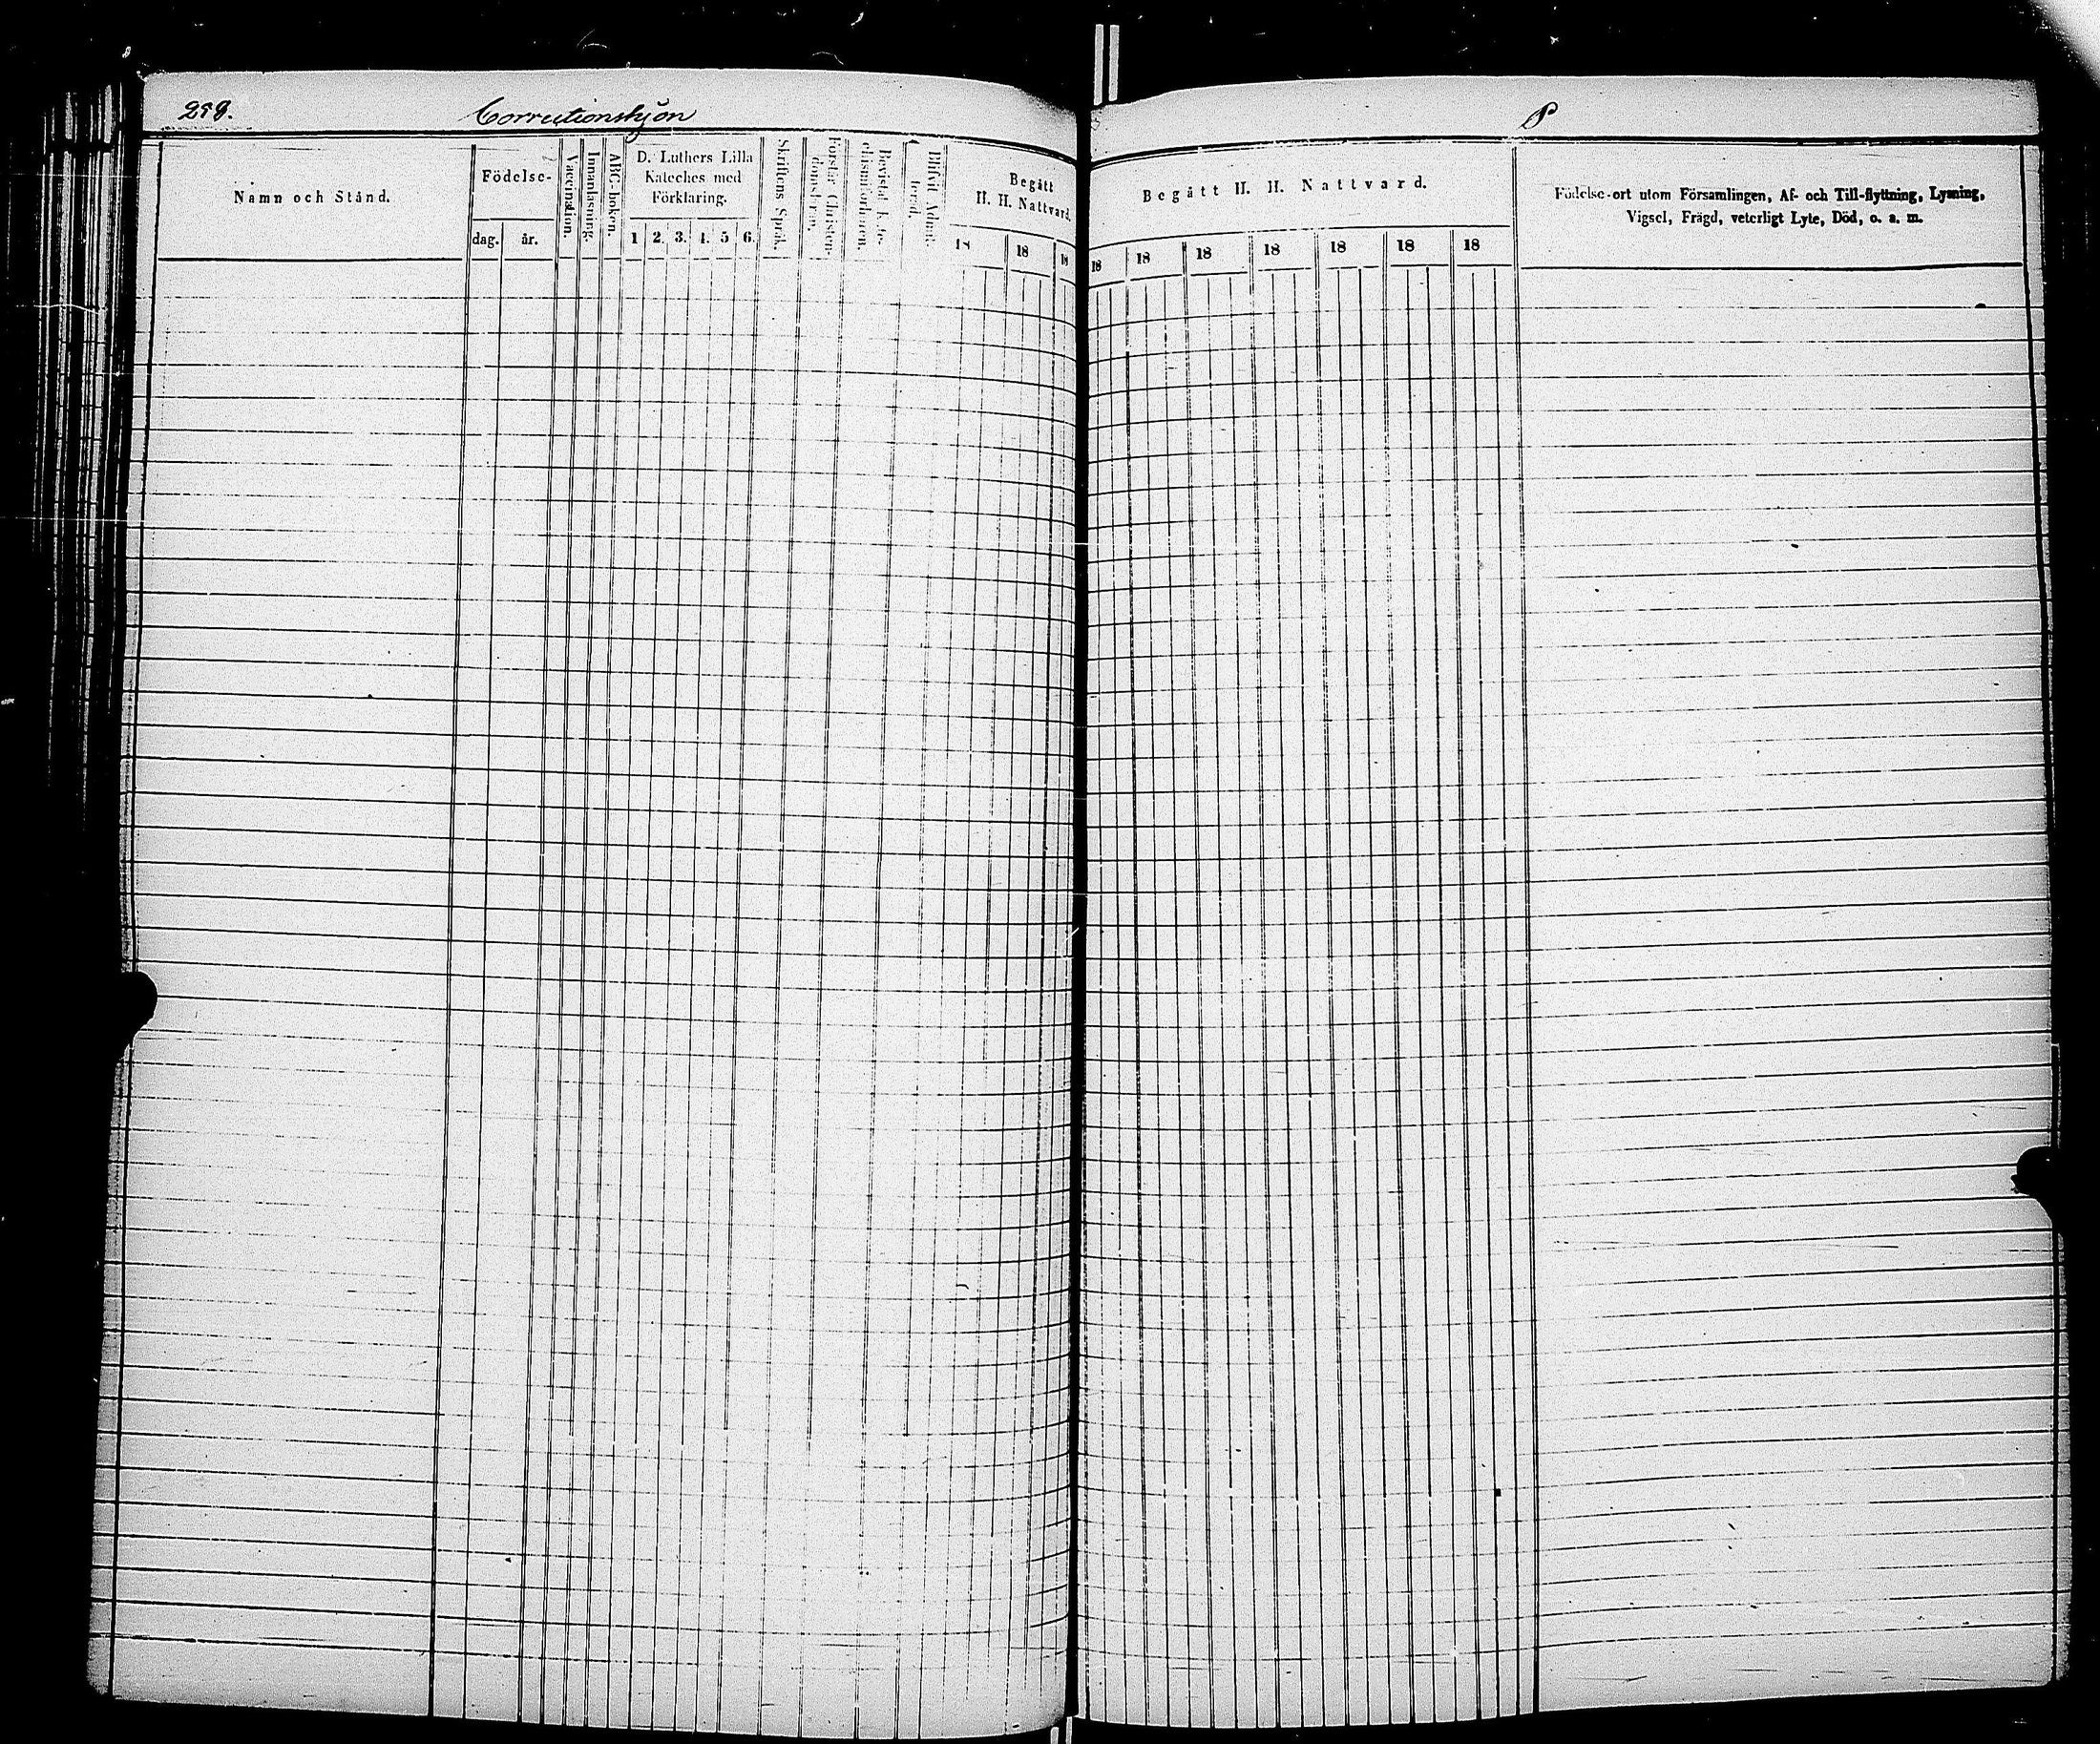 258. Correctionshjon P
Namn och Stånd.
Födelse-
dag. år.
Vaccination.
Innanläsning.
ABC-boken.
D. Luthers Lilla
Kateches med
Förklaring.
1 2. 3. 4. 5 6.
Skriftens Språk.
Förstår Christen-
domsläran.
Bevistat Kate-
chismiförhören.
Blifvit Admit-
terad.
Begått
H. H. Nattvard.
18 18 18
Begått H. H. Nattvard.
18 18 18 18 18 18 18
Födelse-ort utom Församlingen, Af- och Till-flyttning, Lysning,
Vigsel, Frägd, veterligt Lyte, Död, o. s. m.